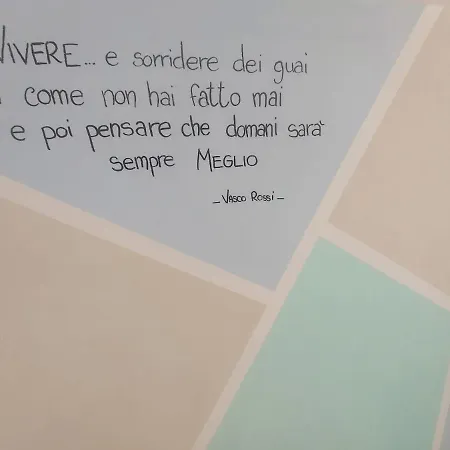 VIVERE... e sorridere dei guai
come non hai fatto mai
e poi pensare che domani sarà
sempre MEGLIO
- VASCO ROSSI -